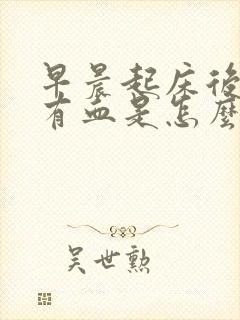 早晨起床後
有血是怎麼
吴世勲